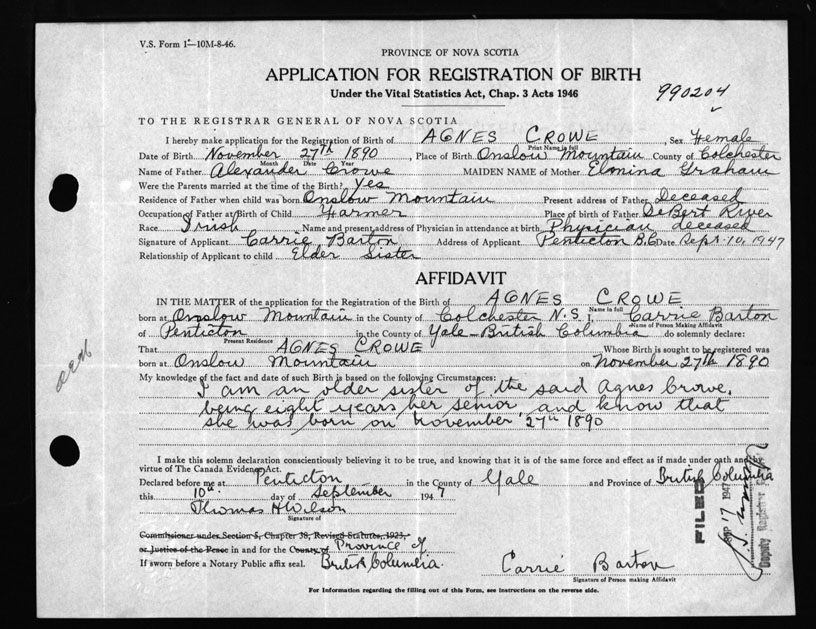 V.S. Form 1—10M-8-46.
PROVINCE OF NOVA SCOTIA
APPLICATION FOR REGISTRATION OF BIRTH
Under the Vital Statistics Act, Chap. 3 Acts 1946
990204
TO THE REGISTRAR GENERAL OF NOVA SCOTIA
I hereby make application for the Registration of Birth of AGNES CROWE, Sex Female
Print Name in full
Date of Birth November 27th 1890, Place of Birth Onslow Mountain County of Colchester
Month Date Year
Name of Father Alexander Crowe MAIDEN NAME of Mother Elmina Graham
Were the Parents married at the time of the Birth? Yes
Residence of Father when child was born Onslow Mountain Present address of Father Deceased
Occupation of Father at Birth of Child Farmer Place of birth of Father DeBert River
Race Irish Name and present address of Physician in attendance at birth Physician deceased
Signature of Applicant Carrie Barton Address of Applicant Penticton B.C. Date Sept. 10, 1947
Relationship of Applicant to child Elder Sister
AFFIDAVIT
IN THE MATTER of the application for the Registration of the Birth of AGNES CROWE
Name in full
born at Onslow Mountain in the County of Colchester N.S. I, Carrie Barton
Name of Person Making Affidavit
of Penticton in the County of Yale - British Columbia do solemnly declare:
Present Residence
That AGNES CROWE Whose Birth is sought to be registered was
born at Onslow Mountain on November 27th 1890
My knowledge of the fact and date of such Birth is based on the following Circumstances:
I am an older sister of the said Agnes Crowe,
being eight years her senior, and know that
she was born on November 27th 1890
I make this solemn declaration conscientiously believing it to be true, and knowing that it is of the same force and effect as if made under oath and by
virtue of The Canada Evidence Act.
Declared before me at Penticton in the County of Yale and Province of British Columbia
this 10th day of September 1947
Thomas H Wilson
Signature of
Commissioner under Section 5, Chapter 38, Revised Statutes, 1923,
or Justice of the Peace in and for the County of Province of
If sworn before a Notary Public affix seal. British Columbia.
Carrie Barton
Signature of Person making Affidavit
FILED
SEP 17 1947
Deputy Registrar
For Information regarding the filling out of this Form, see instructions on the reverse side.